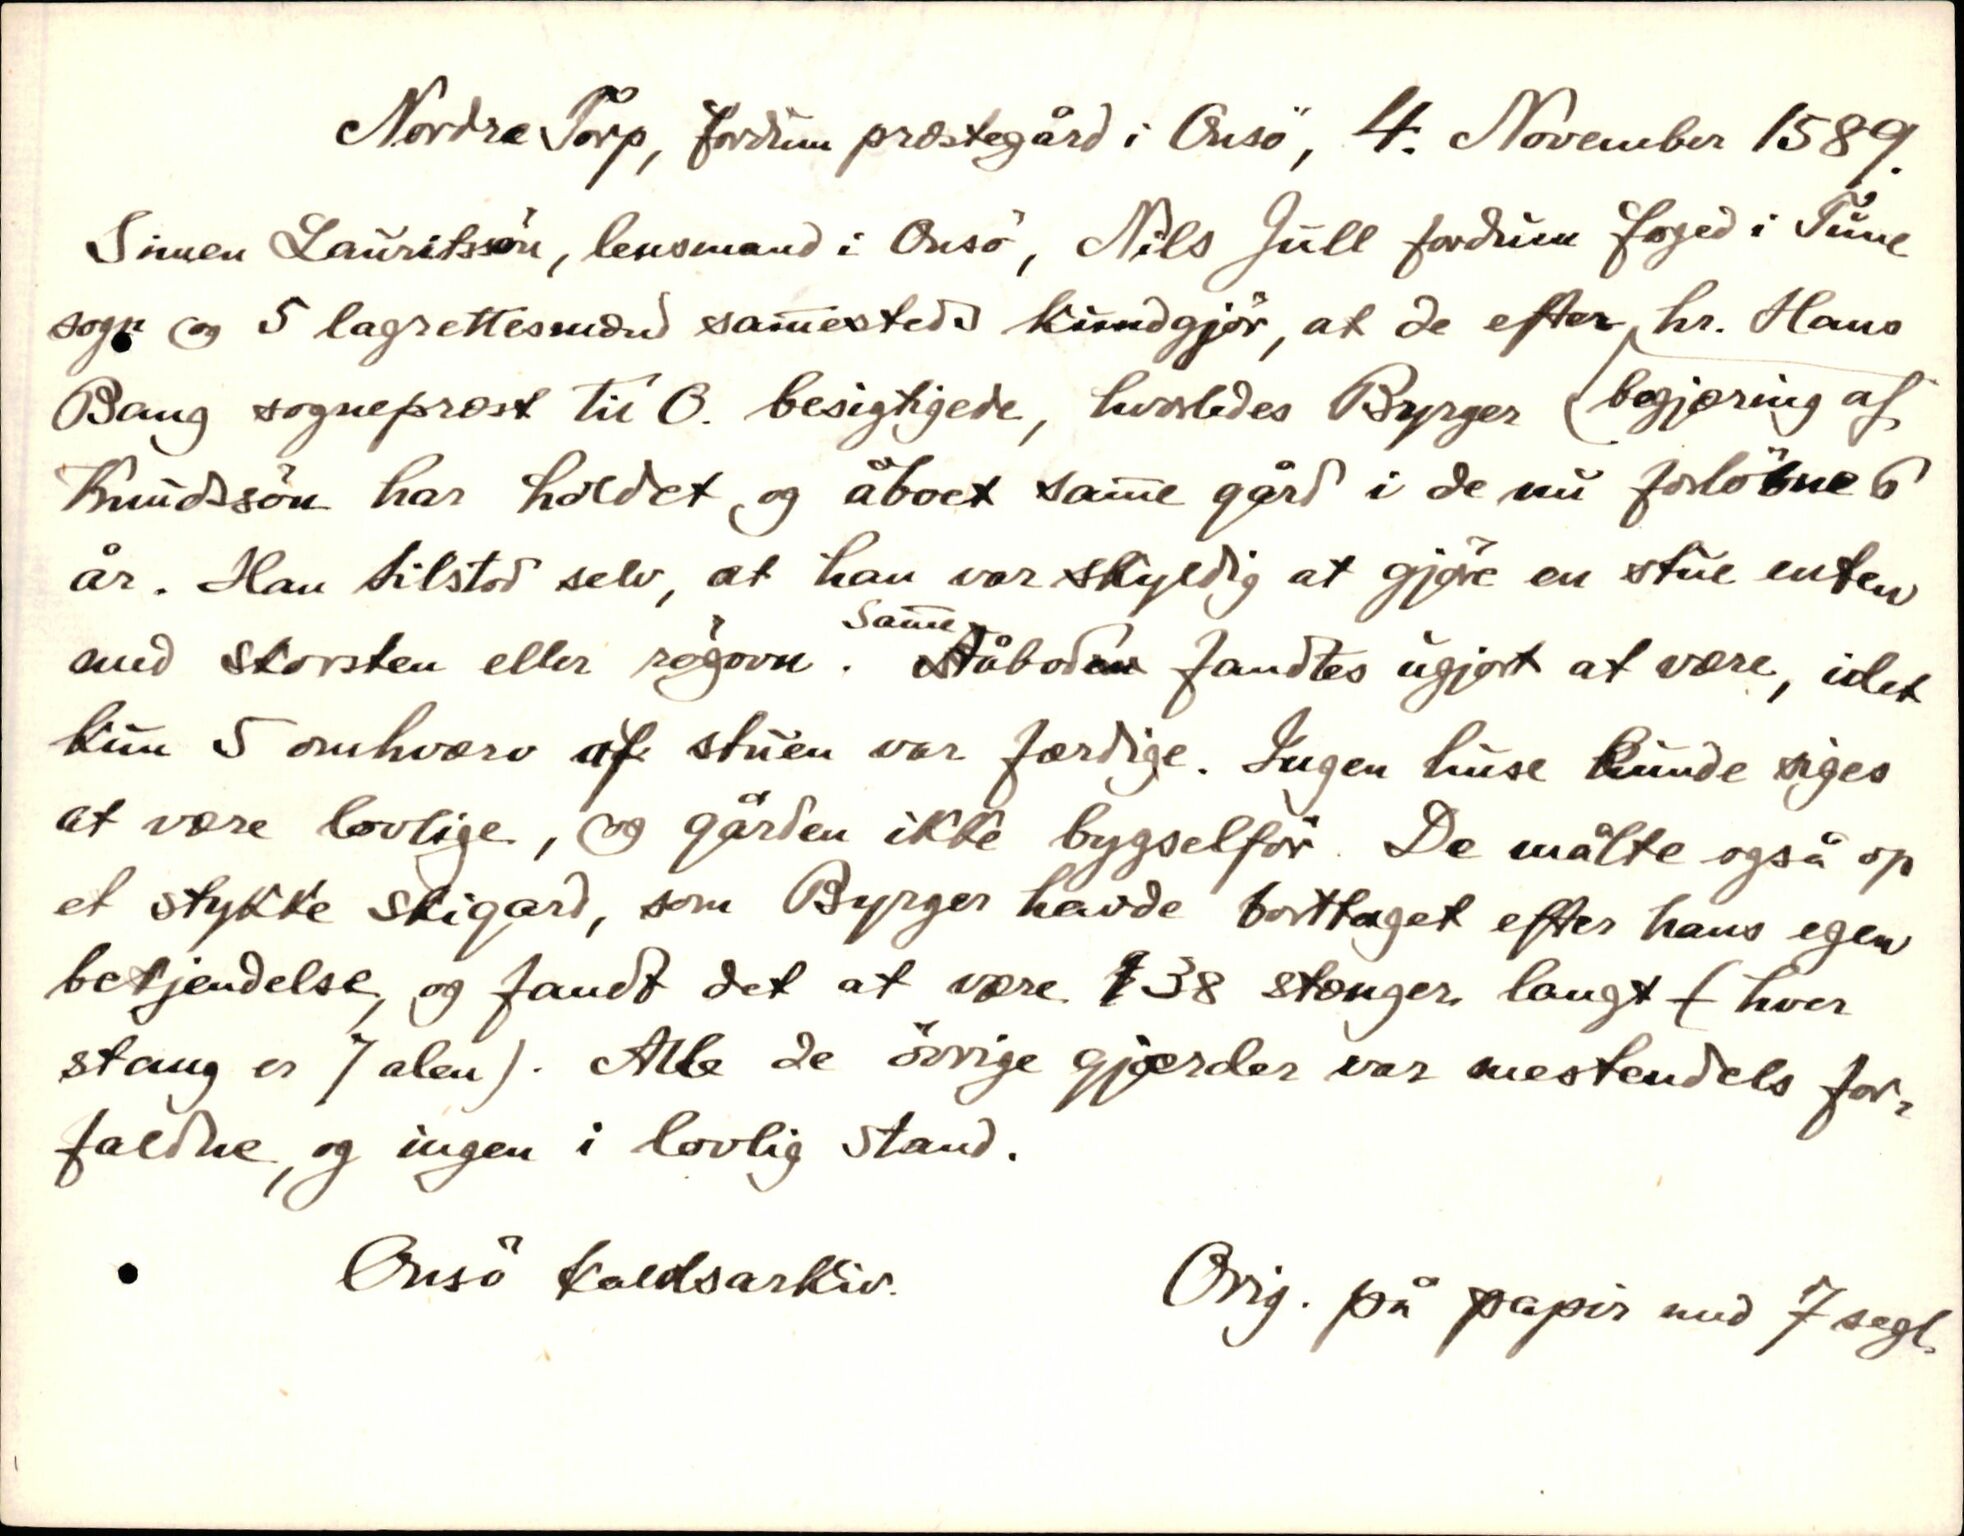 Nordre Torp, fordum præstegård i Onsö, 4. November 1589.
Simen Lauritssön, lensmand i Onsö, Nils Jull fordum foged i Tune
sogn og 5 lagrettesmænd sam̄esteds kundgjör, at de efter hr. Hans
Bang sogneprest til O. besigtigede, hvorledes Byrger (begjæring af
Knudssön har holdet og åboet sam̄e gård i de nu forlöbne 6
år. Han tilstod selv, at han var skyldig at gjöre en stue enten
med skorsten eller rögovn. Sam̄e åbod fandtes ugjort at være, idet
kun 5 omhværv af stuen var færdige. Ingen huse kunde siges
at være lovlige, og gården ikke bygselför. De målte også op
et stykke skigard, som Byrger havde borttaget efter hans egen
bekjendelse, og fandt det at være 38 stænger langt (hver
stang er 7 alen). Alle de övrige gjærder var mestendels for-
faldne, og ingen i lovlig stand.
Onsö kaldsarkiv. Orig. på papir med 7 segl.